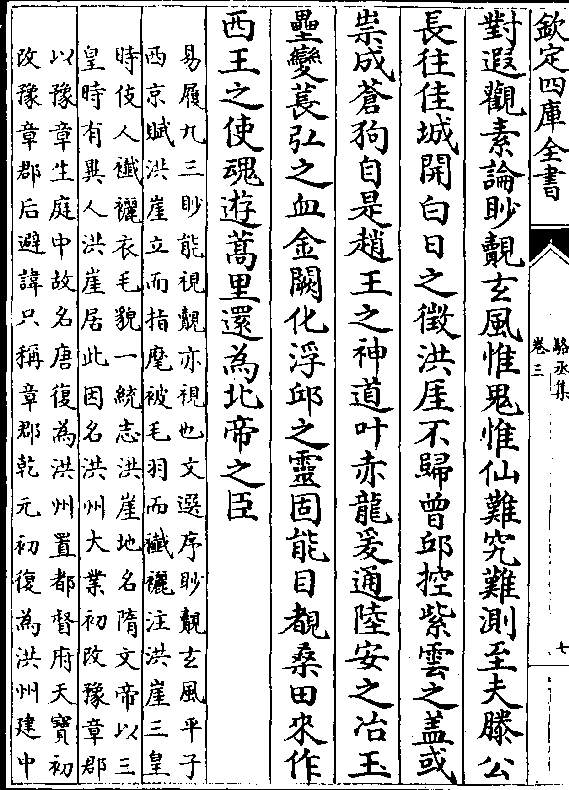 欽定四庫全書
駱丞集
卷三
七
對遐觀素論眇覿玄風惟鬼惟仙難究難測至夫滕公
長往佳城開白日之徵洪厓不歸曾邱控紫雲之蓋或
祟成蒼狗自是趙王之神道叶赤龍爰通陸安之冶玉
壘變萇弘之血金闕化浮邱之靈固能目覩桑田來作
西王之使魂遊蒿里還為北帝之臣
易履九三眇能視覿亦視也文選序眇覿玄風平子
西京賦洪崖立而指麾被毛羽而襳襹注洪崖三皇
時伎人襳襹衣毛貌一統志洪崖地名隋文帝以三
皇時有異人洪崖居此因名洪州大業初改豫章郡
以豫章生庭中故名唐復為洪州置都督府天寶初
改豫章郡后避諱只稱章郡乾元初復為洪州建中